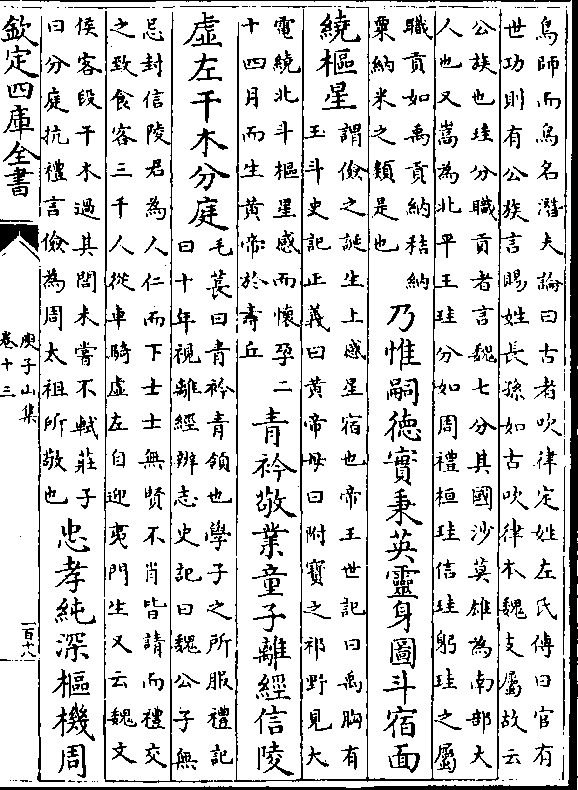 鳥師而鳥名潛夫論曰古者吹律定姓左氏傳曰官有
世功則有公族言賜姓長孫如古吹律本魏支屬故云
公族也珪分職貢者言魏七分其國沙莫雄為南部大
人也又嵩為北平王珪分如周禮桓珪信珪躬珪之屬
職貢如禹貢納秸納
粟納米之類是也
乃惟嗣德實秉英靈身圖斗宿面
繞樞星
謂儉之誕生上感星宿也帝王世記曰禹胸有
玉斗史記正義曰黃帝母曰附寶之祁野見大
電繞北斗樞星感而懷孕二
十四月而生黃帝於壽丘
青衿敬業童子離經信陵
虛左干木分庭
毛萇曰青衿青領也學子之所服禮記
曰十年視離經辨志史記曰魏公子無
忌封信陵君為人仁而下士士無賢不肖皆請而禮交
之致食客三千人從車騎虛左自迎夷門生又云魏文
侯客段干木過其閭未嘗不軾莊子
曰分庭抗禮言儉為周太祖所敬也
忠孝純深樞機周
欽定四庫全書
庾子山集
卷十三
一百十八